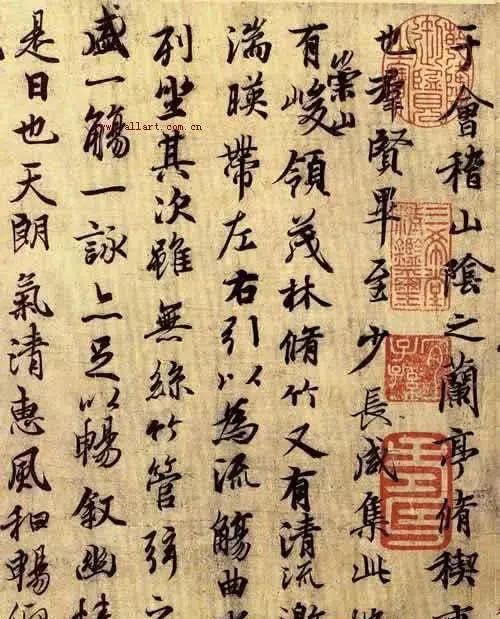 于會稽山陰之蘭亭脩稧事
也羣賢畢至少長咸集此地
有崇山峻領茂林脩竹又有清流激
湍暎帶左右引以為流觴曲水
列坐其次雖無絲竹管弦之
盛一觴一詠亦足以暢敘幽情
是日也天朗氣清惠風和暢仰
三希堂精鑑璽
宜子孫
www.allart.com.cn